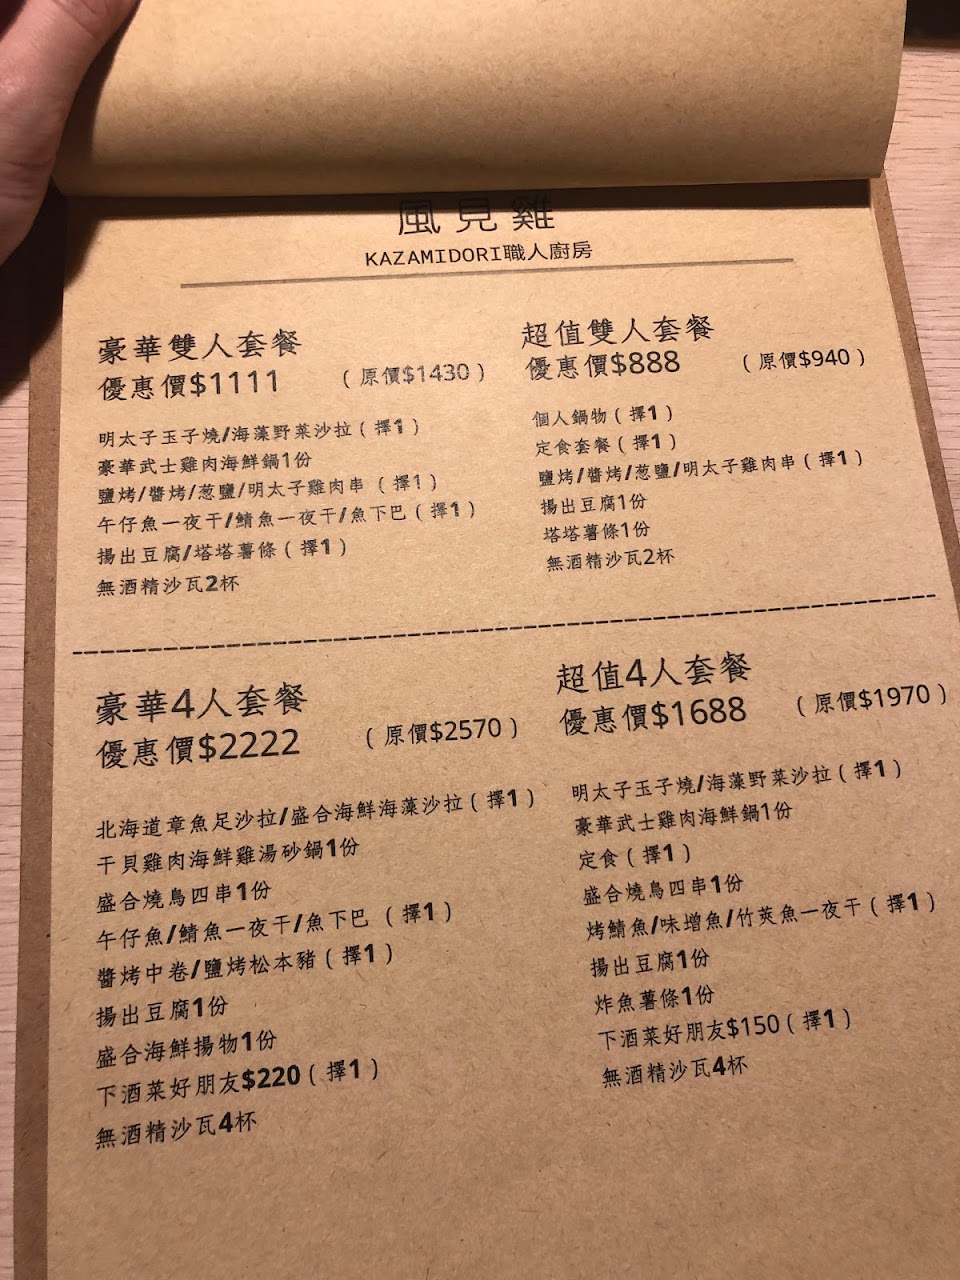 風見雞
KAZAMIDORI職人廚房
豪華雙人套餐
優惠價$1111 (原價$1430)
明太子玉子燒/海藻野菜沙拉(擇1)
豪華武士雞肉海鮮鍋1份
鹽烤/醬烤/葱鹽/明太子雞肉串 (擇1)
午仔魚一夜干/鯖魚一夜干/魚下巴(擇1)
揚出豆腐/塔塔薯條(擇1)
無酒精沙瓦2杯
超值雙人套餐
優惠價$888 (原價$940)
個人鍋物(擇1)
定食套餐(擇1)
鹽烤/醬烤/葱鹽/明太子雞肉串(擇1)
揚出豆腐1份
塔塔薯條1份
無酒精沙瓦2杯
豪華4人套餐
優惠價$2222 (原價$2570)
北海道章魚足沙拉/盛合海鮮海藻沙拉(擇1)
干貝雞肉海鮮雞湯砂鍋1份
盛合燒鳥四串1份
午仔魚/鯖魚一夜干/魚下巴 (擇1)
醬烤中卷/鹽烤松本豬(擇1)
揚出豆腐1份
盛合海鮮揚物1份
下酒菜好朋友$220(擇1)
無酒精沙瓦4杯
超值4人套餐
優惠價$1688 (原價$1970)
明太子玉子燒/海藻野菜沙拉(擇1)
豪華武士雞肉海鮮鍋1份
定食(擇1)
盛合燒鳥四串1份
烤鯖魚/味增魚/竹莢魚一夜干(擇1)
揚出豆腐1份
炸魚薯條1份
下酒菜好朋友$150(擇1)
無酒精沙瓦4杯